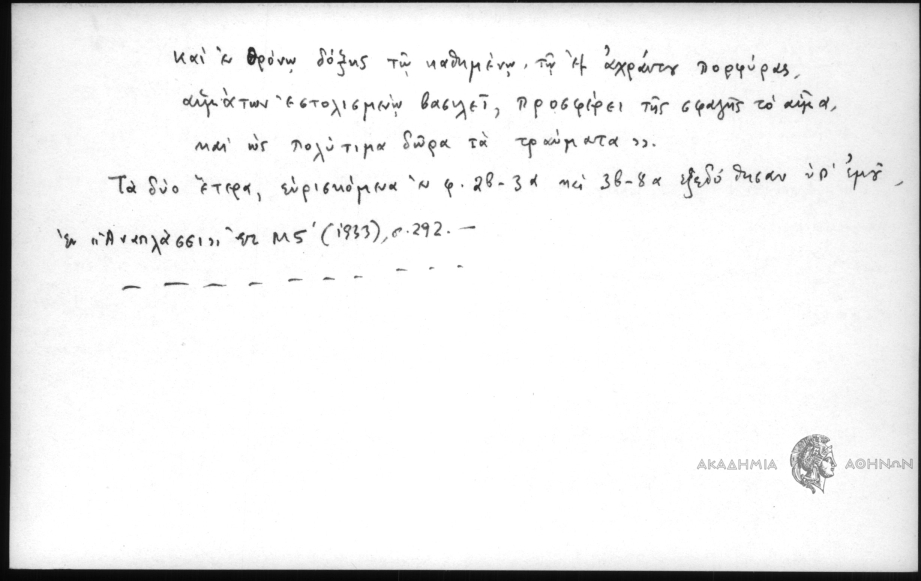 καὶ ἐν θρόνῳ δόξης τῷ καθημένῳ, τῷ ἐξ ἀχράντου πορφύρας,
αἱμάτων ἐστολισμένῳ βασιλεῖ, προσφέρει τῆς σφαγῆς τὸ αἷμα,
καὶ ὡς πολύτιμα δῶρα τὰ τραύματα».
Τὰ δύο ἕτερα, εὑρισκόμενα ἐν φ. 2β-3α καὶ 3β-8α ἐξεδόθησαν ὑπ' ἐμοῦ,
ἐν «Ἀναπλάσει», ἔτ. ΜϚ' (1933), σ. 292. —
ΑΚΑΔΗΜΙΑ ΑΘΗΝΩΝ